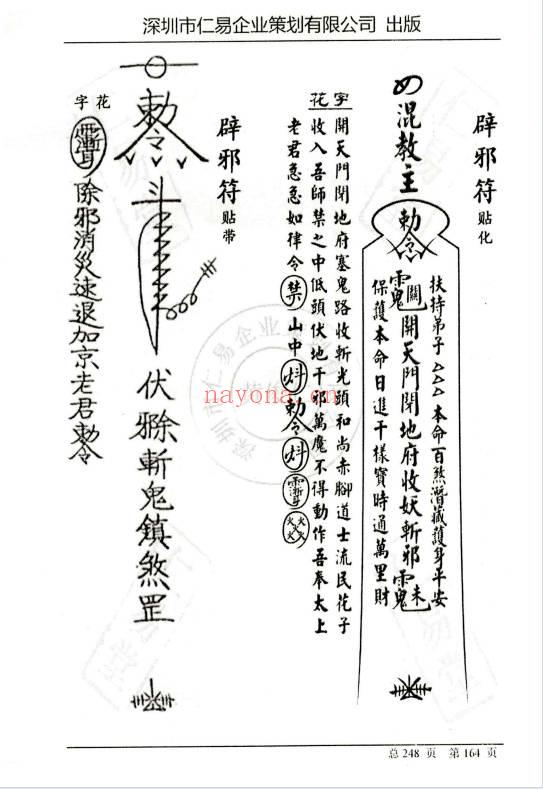 深圳市仁易企业策划有限公司 出版
辟邪符 贴化
混教主
勅令
扶持弟子△△△本命百煞潛藏護身平安
開天門閉地府收妖斬邪
保護本命日進千樣寶時通萬里財
花字
開天門閉地府塞鬼路收斬光頭和尚赤腳道士流民花子
收入吾師禁之中低頭伏地干邪萬魔不得動作吾奉太上
老君急急如律令 禁 山中 炓 勅令 炓
辟邪符 贴带
勅令
斗
伏 斬鬼鎮煞罡
花字
除邪消災速退加京老君勅令
深圳市仁易企业
nayona.cn
总 248 页 第 164 页